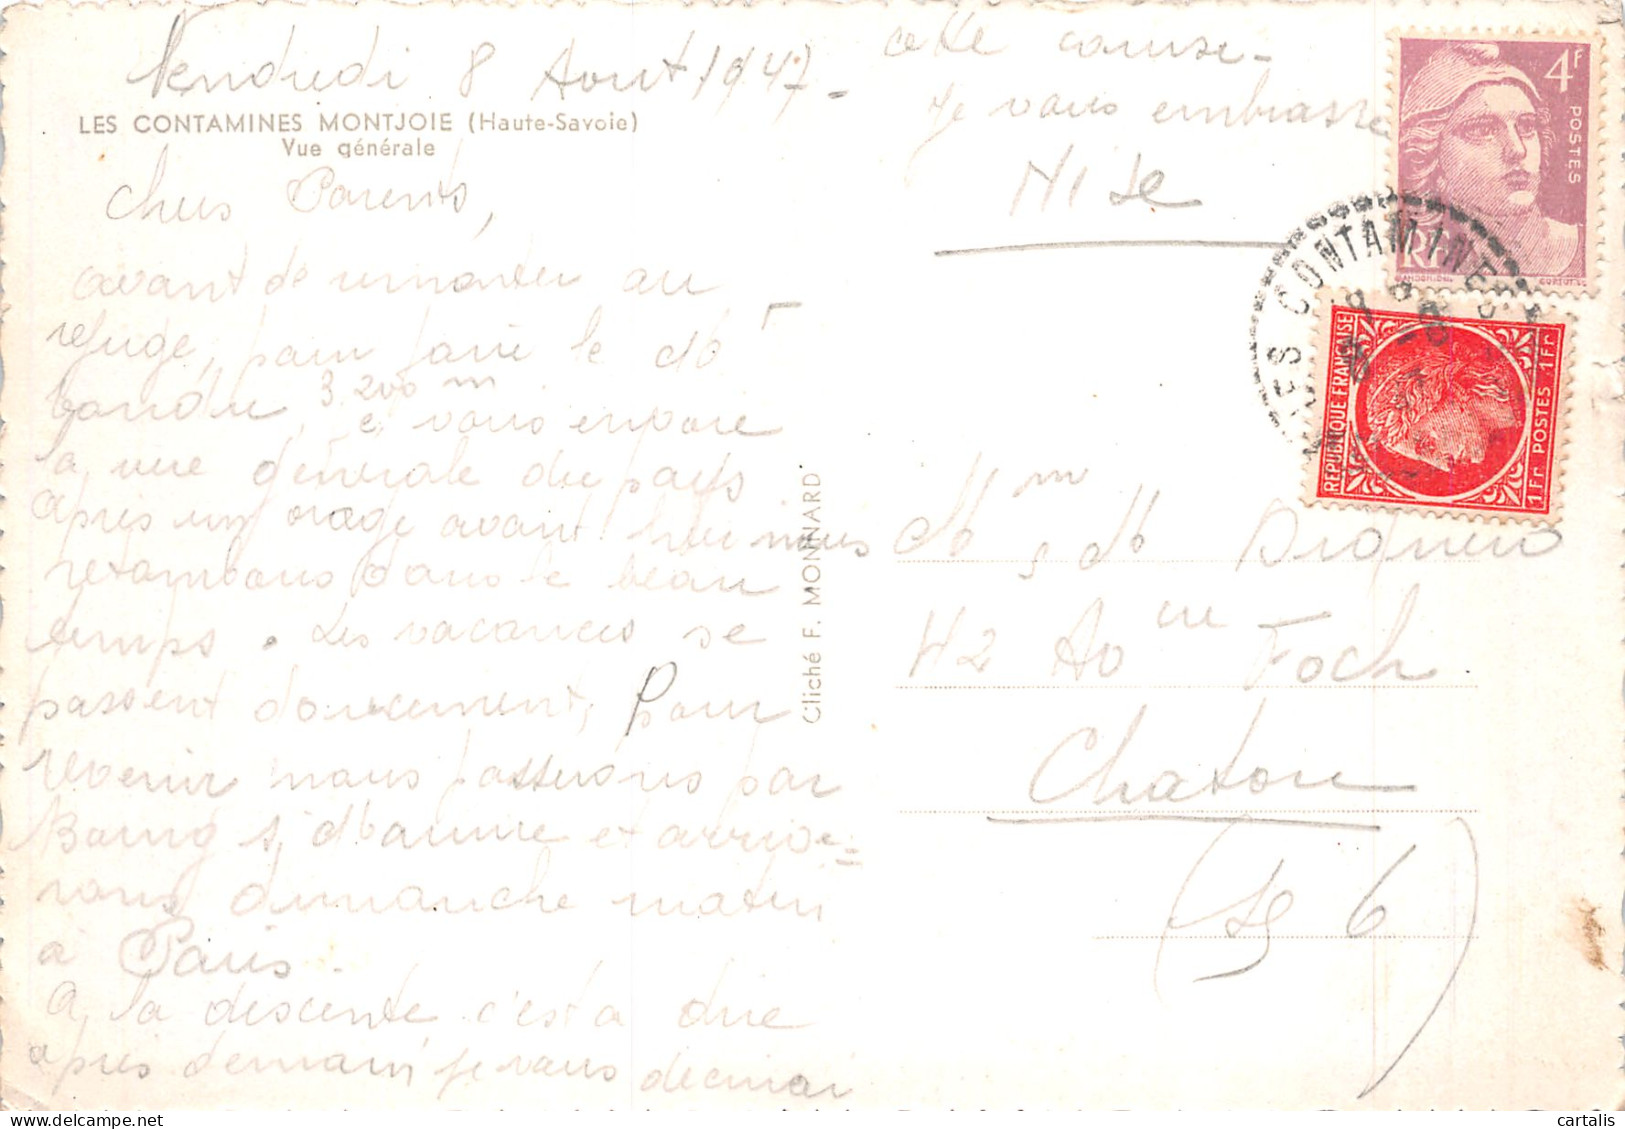 Vendredi 8 Aout 1947-
LES CONTAMINES MONTJOIE (Haute-Savoie)
Vue générale
Chers Parents,
avant de remonter au
refuge, pour faire le Mt
Tondu, 3.200 m je vous envoie
la vue générale du pays
après un orage avant hier nous
retombons dans le beau
temps. Les vacances se
passent doucement, Pour
revenir nous passerons par
Bourg s/ Maurice et arrive=
rons dimanche matin
a Paris.
A la descente c'est a dire
après demain je vous
cette course-
Je vous embrasse
Cliché F. MONNARD
4F
POSTES
RF
LES CONTAMINES
REPUBLIQUE FRANÇAISE
1Fr POSTES 1Fr
Mm, M
42 Avenue Foch
Chatou
(S 6)
cartalis